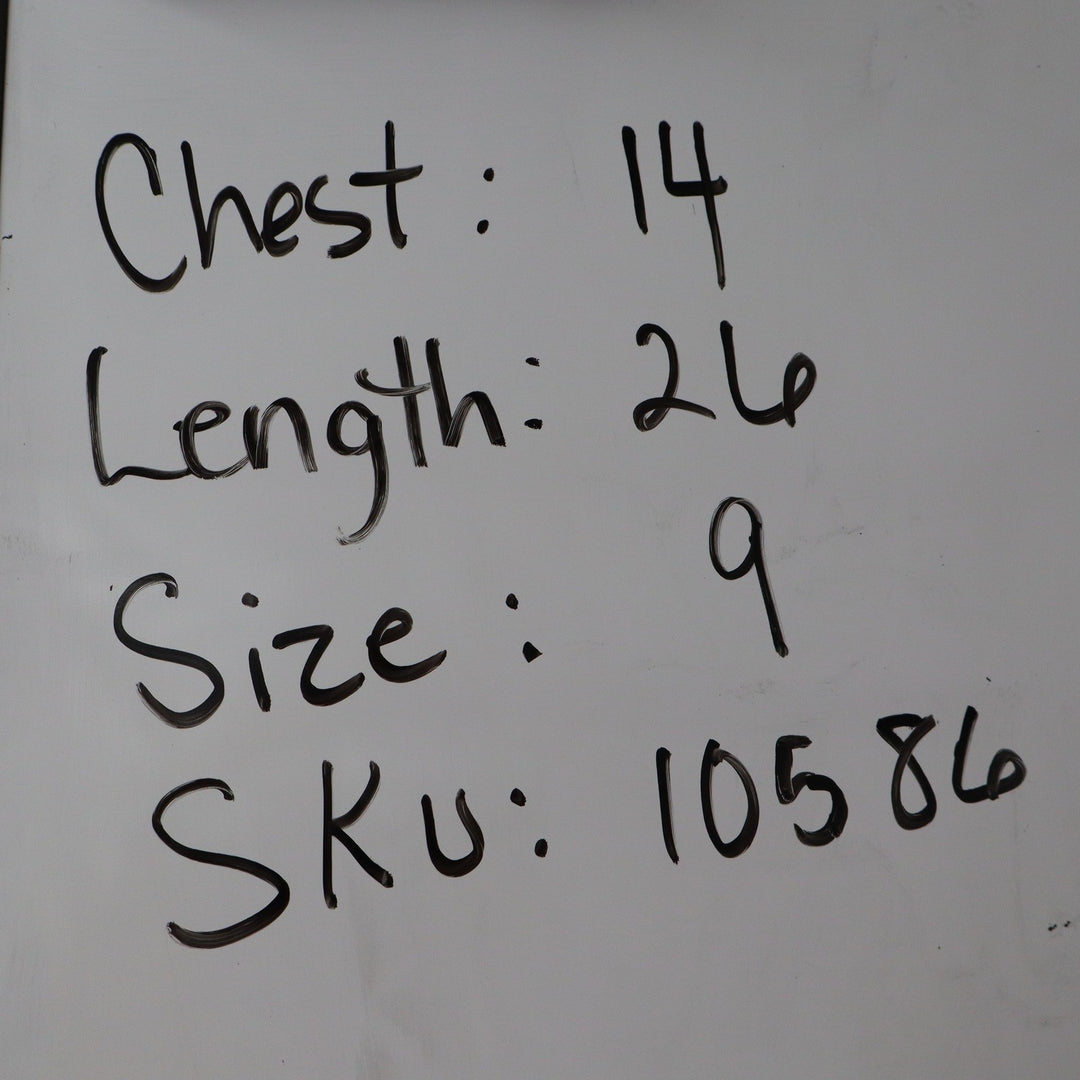 Chest: 14
Length: 26
Size: 9
SKU: 10586